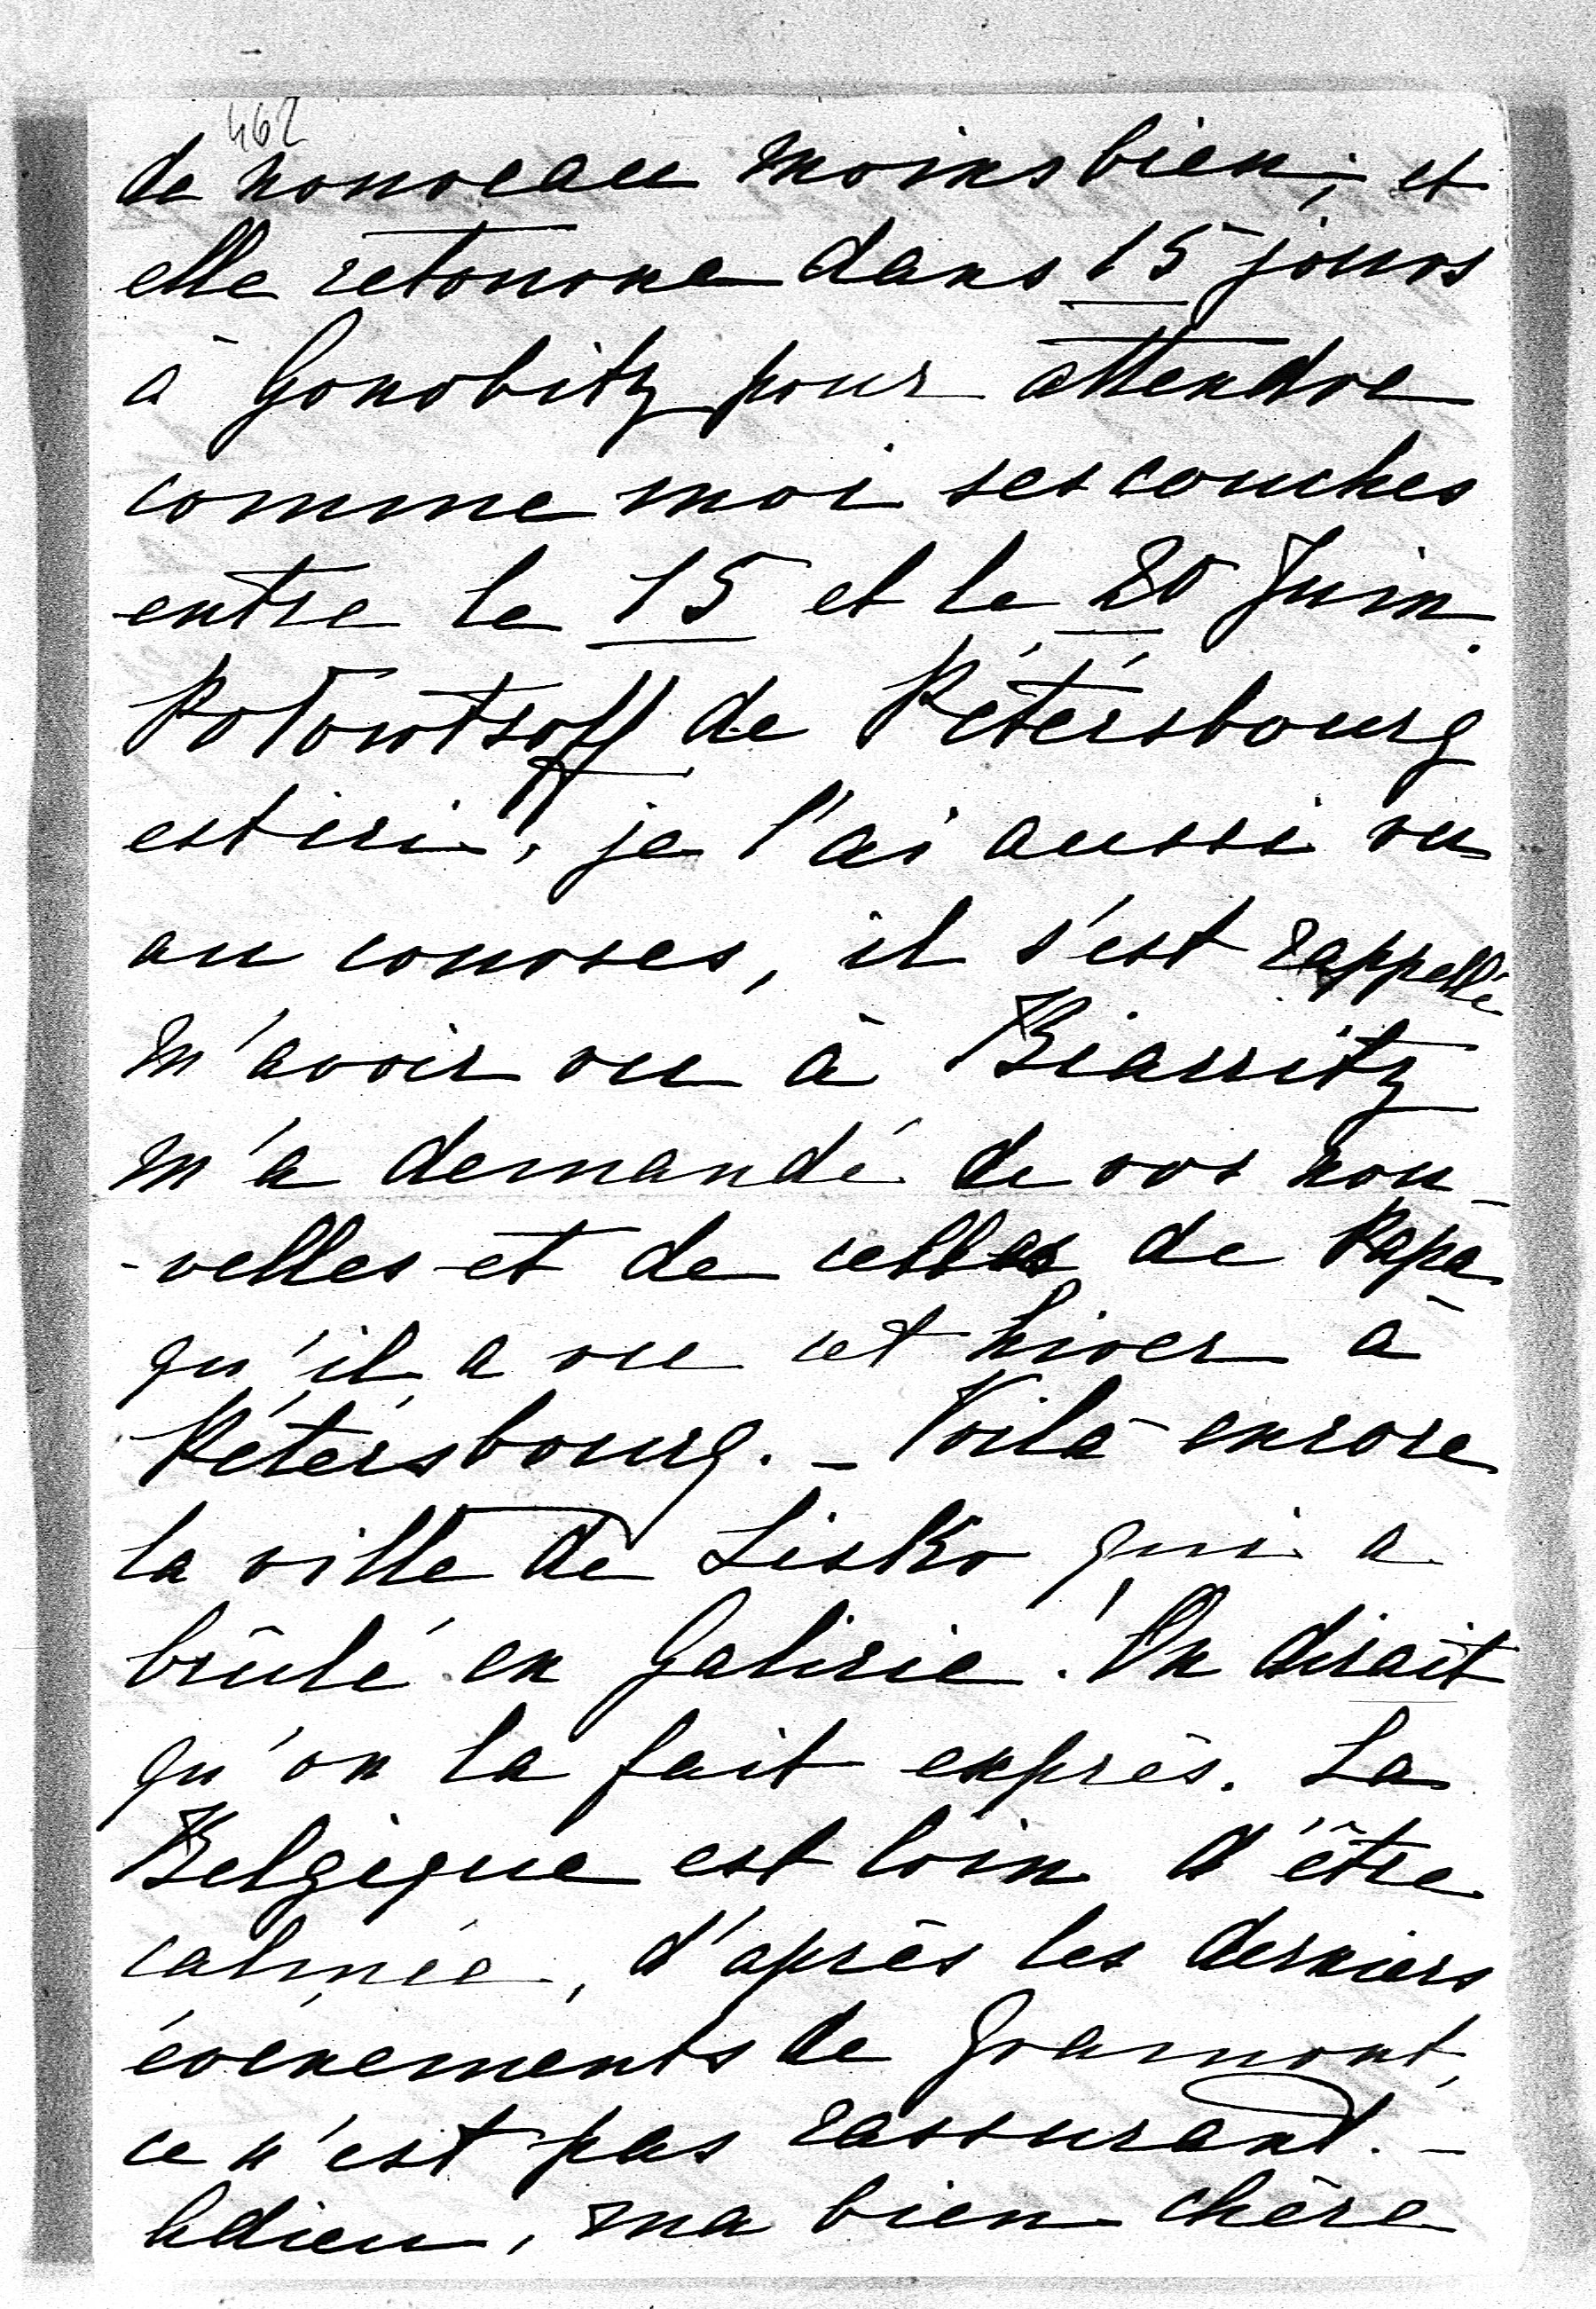 462
de nouveau moins bien; et
elle retourne dans 15 jours
à Gonobitz pour attendre
comme moi ses couches
entre le 15 et le 20 Juin.
Polowtsoff de Pétérsbourg
est ici, je l'ai aussi vu
au courses, il s'est rappellé
m'avoir vu à Biarritz
m'a demandé de vos nou-
-velles et de celles de Papa
qu'il a vu cet hiver à
Pétérsbourg. - Voilà encore
la ville de Lisko qui a
brûlé en Galicie. On dirait
qu'on la fait exprès. La
Belgique est loin d'être
calmée, d'après les derniers
événements de Gramont,
ce n'est pas rassurant. -
Adieu, ma bien chère